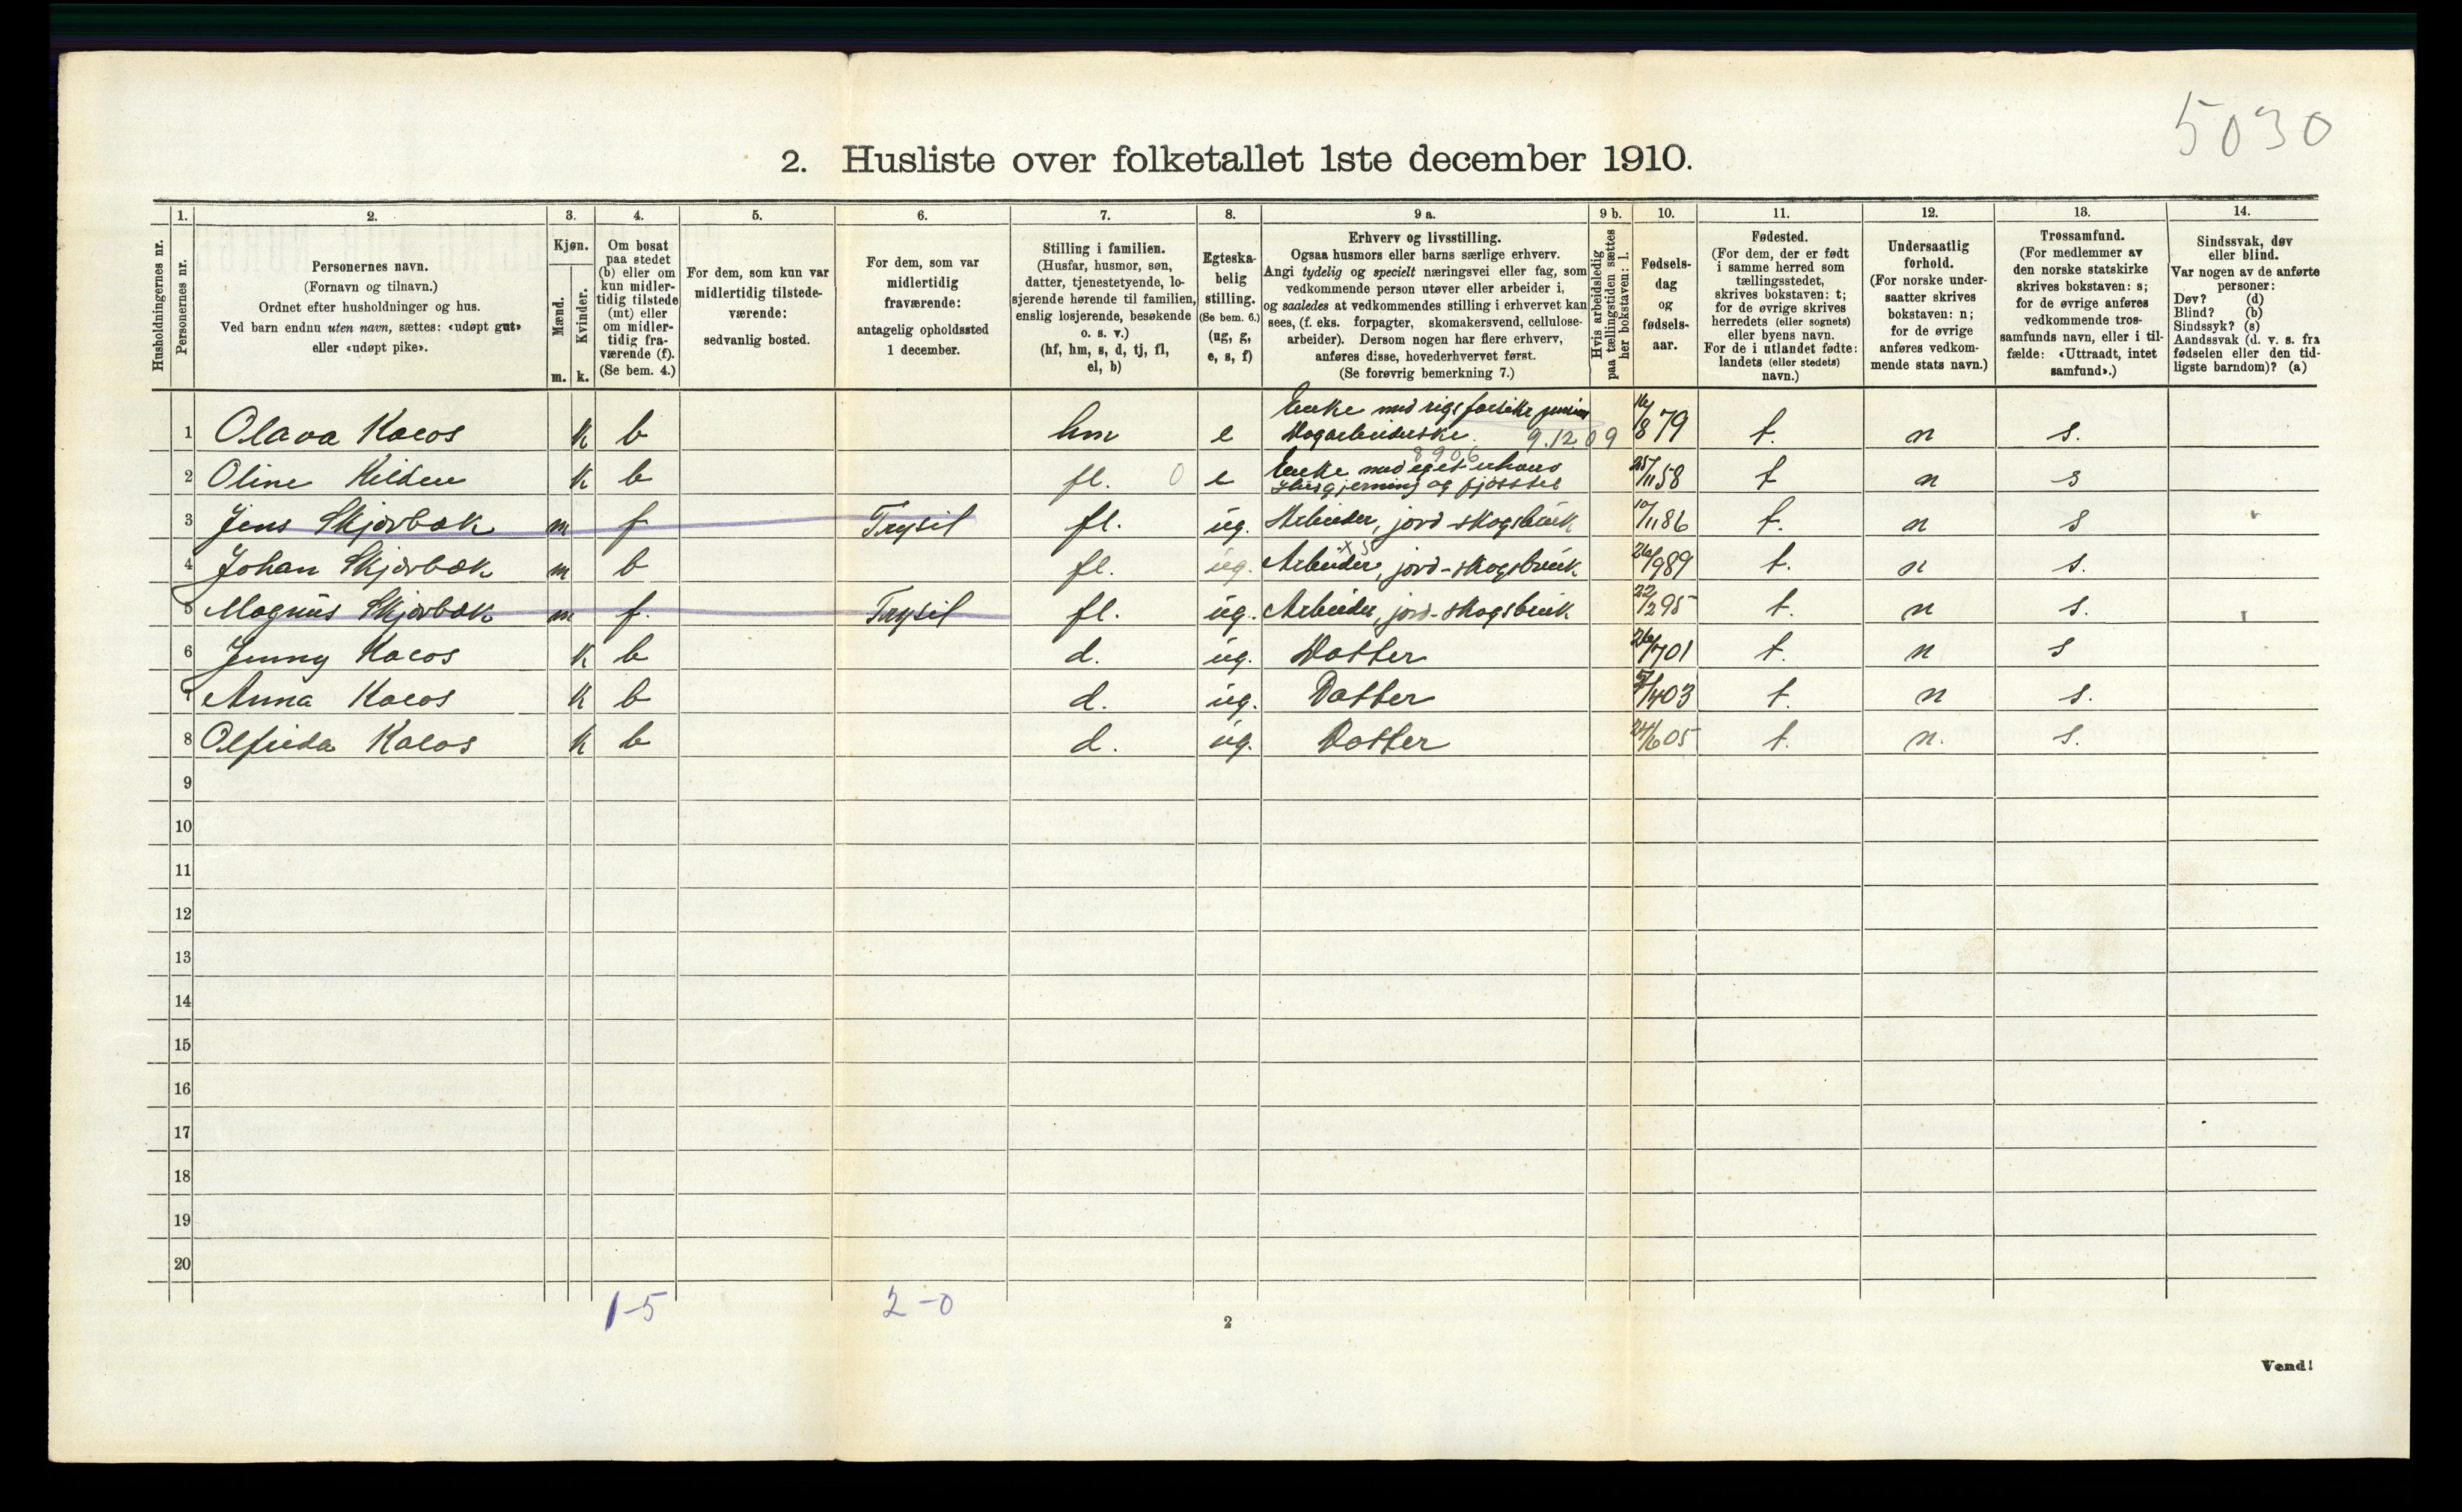 5030
2. Husliste over folketallet 1ste december 1910.
Husholdningernes nr.
1.
Personernes nr.
2.
Personernes navn.
(Fornavn og tilnavn.)
Ordnet efter husholdninger og hus.
Ved barn endnu uten navn, sættes: «udøpt gut»
eller «udøpt pike».
3.
Kjøn.
Mænd.
Kvinder.
m. k.
4.
Om bosat
paa stedet
(b) eller om
kun midler-
tidig tilstede
(mt) eller
om midler-
tidig fra-
værende (f).
(Se bem. 4.)
5.
For dem, som kun var
midlertidig tilstede-
værende:
sedvanlig bosted.
6.
For dem, som var
midlertidig
fraværende:
antagelig opholdssted
1 december.
7.
Stilling i familien.
(Husfar, husmor, søn,
datter, tjenestetyende, lo-
sjerende hørende til familien,
enslig losjerende, besøkende
o. s. v.)
(hf, hm, s, d, tj, fl,
el, b)
8.
Egteska-
belig
stilling.
(Se bem. 6.)
(ug, g,
e, s, f)
9 a.
Erhverv og livsstilling.
Ogsaa husmors eller barns særlige erhverv.
Angi tydelig og specielt næringsvei eller fag, som
vedkommende person utøver eller arbeider i,
og saaledes at vedkommendes stilling i erhvervet kan
sees, (f. eks. forpagter, skomakersvend, cellulose-
arbeider). Dersom nogen har flere erhverv,
anføres disse, hovederhvervet først.
(Se forøvrig bemerkning 7.)
9 b.
Hvis arbeidsledig
paa tællingstiden sættes
her bokstaven: l.
10.
Fødsels-
dag
og
fødsels-
aar.
11.
Fødested.
(For dem, der er født
i samme herred som
tællingsstedet,
skrives bokstaven: t;
for de øvrige skrives
herredets (eller sognets)
eller byens navn.
For de i utlandet fødte:
landets (eller stedets)
navn.)
12.
Undersaatlig
forhold.
(For norske under-
saatter skrives
bokstaven: n;
for de øvrige
anføres vedkom-
mende stats navn.)
13.
Trossamfund.
(For medlemmer av
den norske statskirke
skrives bokstaven: s;
for de øvrige anføres
vedkommende tros-
samfunds navn, eller i til-
fælde: «Uttraadt, intet
samfund».)
14.
Sindssvak, døv
eller blind.
Var nogen av de anførte
personer:
Døv? (d)
Blind? (b)
Sindssyk? (s)
Aandssvak (d. v. s. fra
fødselen eller den tid-
ligste barndom)? (a)
Enke med rigsforsikr pension
1 Olava Kaeos k b hm e Dagarbeiderske. 9.12.09 16/8 79 t. n s.
8906
Enke med eget
2 Oline Kilden k b fl. 0 e Husgjerning og fjøsstel 25/11 58 t n s
3 Jens Skjærbæk m f Trysil fl. ug. Arbeider, jord-skogsbruk 10/11 86 t. n s
4 Johan Skjærbæk m b fl. ug. Arbeider, jord-skogsbruk 26/9 89 t. n s.
5 Magnus Skjærbæk m f. Trysil fl. ug. Arbeider, jord-skogsbruk 22/2 95 t. n s.
6 Jenny Kaeos k b d. ug. Datter 26/7 01 t. n s
7 Anna Kaeos k b d. ug. Datter 03 t. n s.
8 Olfrida Kaeos k b d. ug. Datter 24/6 05 t. n. s.
9
10
11
12
13
14
15
16
17
18
19
20
1-5 2-0
2
Vend!